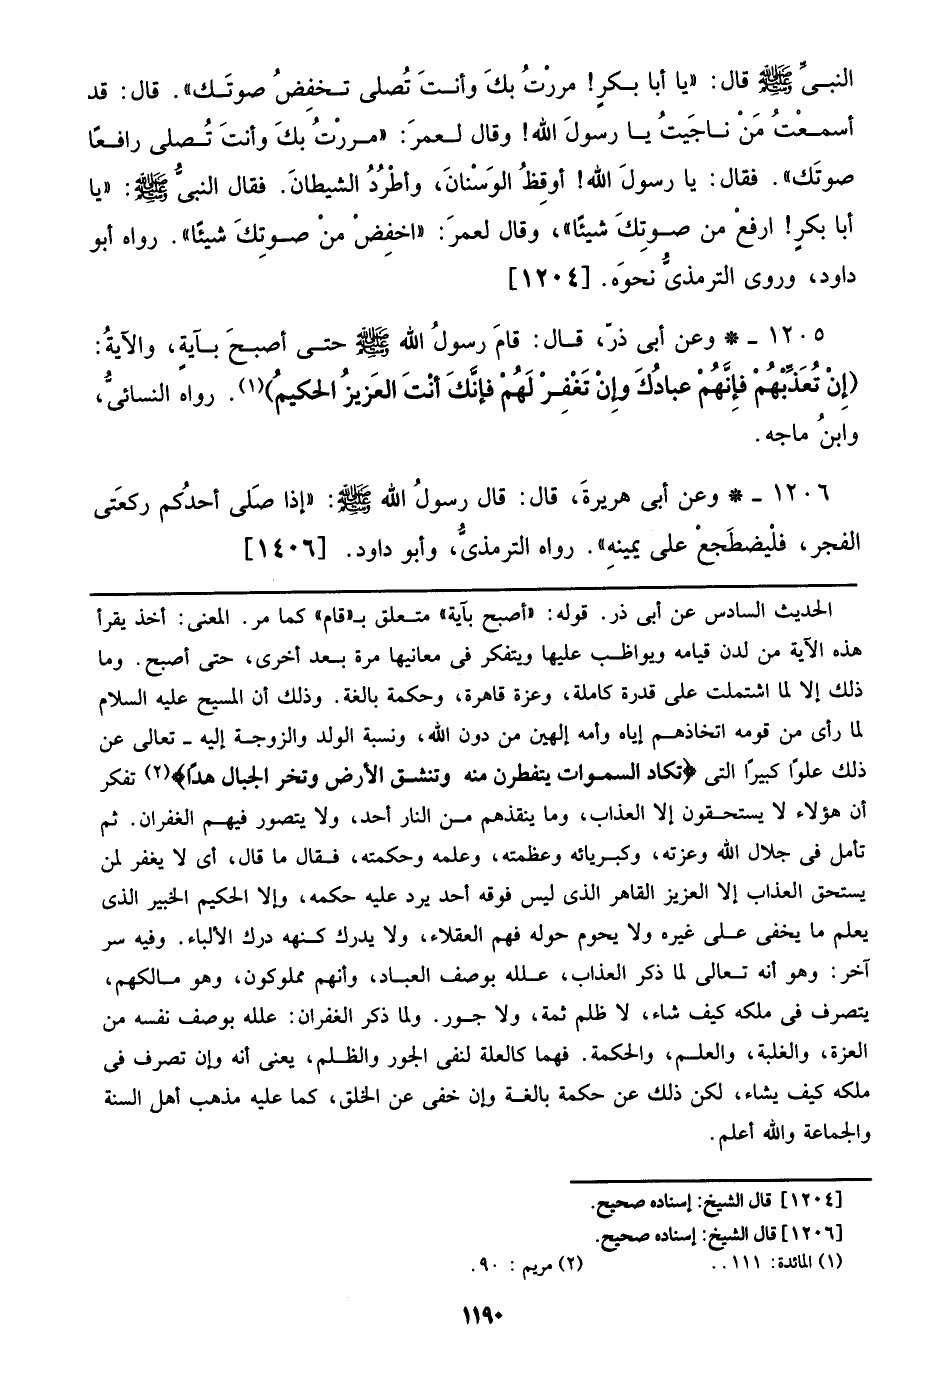 النبىَّ ﷺ قال: «يا أبا بكرٍ! مررْتُ بكَ وأنتَ تُصلى تخفِضُ صوتَك». قال: قد
أسمعْتُ مَنْ ناجَيتُ يا رسولَ الله! وقال لعمرَ: «مررْتُ بكَ وأنتَ تُصلى رافعًا
صوتَك». فقال: يا رسولَ الله! أوقِظُ الوَسْنانَ، وأطْرُدُ الشيطانَ. فقال النبىُّ ﷺ: «يا
أبا بكرٍ! ارفعْ من صوتِكَ شيئًا»، وقال لعمرَ: «اخفِضْ منْ صوتِكَ شيئًا». رواه أبو
داود، وروى الترمذىُّ نحوَه. [١٢٠٤]
١٢٠٥ ـ * وعن أبى ذرّ، قال: قامَ رسولُ الله ﷺ حتى أصبحَ بآيةٍ، والآيةُ:
(إِنْ تُعَذِّبْهُمْ فَإِنَّهُمْ عبادُكَ وإنْ تَغْفِرْ لَهُمْ فإنَّكَ أنْتَ العَزيزُ الحكيمُ)(١). رواه النسائىُّ،
وابنُ ماجه.
١٢٠٦ ـ * وعن أبى هريرةَ، قال: قال رسولُ الله ﷺ: «إذا صَلى أحدُكم ركعَتى
الفجر، فلْيضطَجعْ على يمينهِ». رواه الترمذىُّ، وأبو داود. [١٤٠٦]
الحديث السادس عن أبى ذر. قوله: «أصبح بآية» متعلق بـ«قام» كما مر. المعنى: أخذ يقرأ
هذه الآية من لدن قيامه ويواظب عليها ويتفكر فى معانيها مرة بعد أخرى، حتى أصبح. وما
ذلك إلا لما اشتملت على قدرة كاملة، وعزة قاهرة، وحكمة بالغة. وذلك أن المسيح عليه السلام
لما رأى من قومه اتخاذهم إياه وأمه إلهين من دون الله، ونسبة الولد والزوجة إليه ـ تعالى عن
ذلك علوًا كبيرًا التى ﴿تكاد السموات يتفطرن منه وتنشق الأرض وتخر الجبال هدًا﴾(٢) تفكر
أن هؤلاء لا يستحقون إلا العذاب، وما ينقذهم من النار أحد، ولا يتصور فيهم الغفران. ثم
تأمل فى جلال الله وعزته، وكبريائه وعظمته، وعلمه وحكمته، فقال ما قال، أى لا يغفر لمن
يستحق العذاب إلا العزيز القاهر الذى ليس فوقه أحد يرد عليه حكمه، وإلا الحكيم الخبير الذى
يعلم ما يخفى على غيره ولا يحوم حوله فهم العقلاء، ولا يدرك كنهه درك الألباء. وفيه سر
آخر: وهو أنه تعالى لما ذكر العذاب، علله بوصف العباد، وأنهم مملوكون، وهو مالكهم،
يتصرف فى ملكه كيف شاء، لا ظلم ثمة، ولا جور. ولما ذكر الغفران: علله بوصف نفسه من
العزة، والغلبة، والعلم، والحكمة. فهما كالعلة لنفى الجور والظلم، يعنى أنه وإن تصرف فى
ملكه كيف يشاء، لكن ذلك عن حكمة بالغة وإن خفى عن الخلق، كما عليه مذهب أهل السنة
والجماعة والله أعلم.
[١٢٠٤] قال الشيخ: إسناده صحيح.
[١٢٠٦] قال الشيخ: إسناده صحيح.
(١) المائدة: ١١١.. (٢) مريم: ٩٠.
١١٩٠